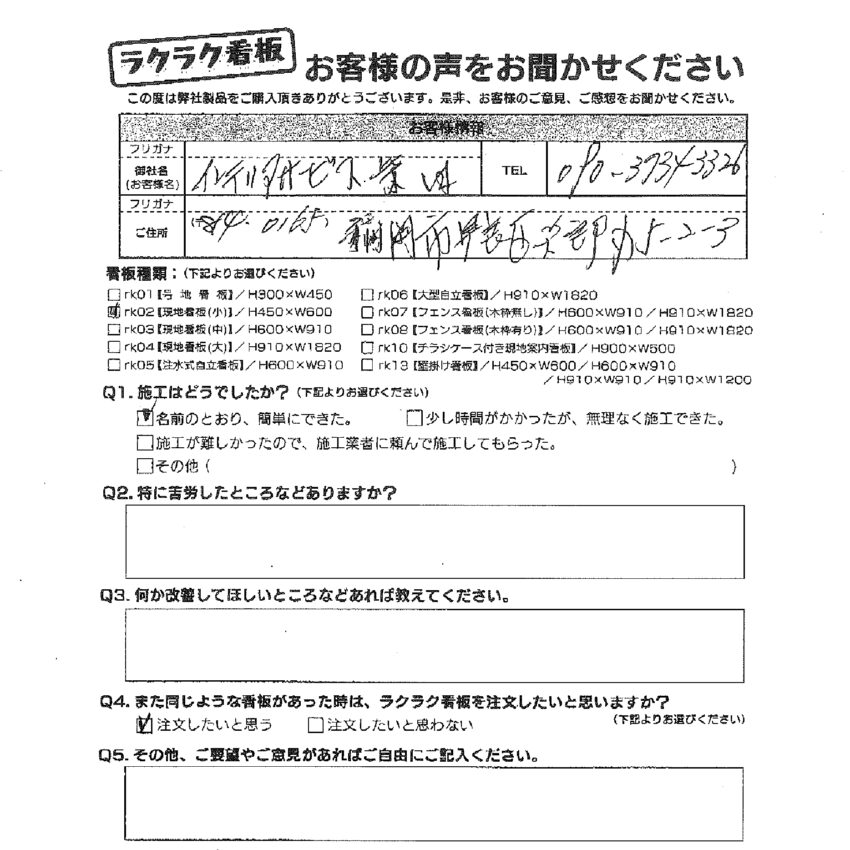 ラクラク看板
お客様の声をお聞かせください
この度は弊社製品をご購入頂きありがとうございます。是非、お客様のご意見、ご感想をお聞かせください。
お客様情報
フリガナ
御社名
(お客様名)
インテリアサービス
TEL
090-3734-3326
フリガナ
ご住所
0165)
市 5-2-3
看板種類：(下記よりお選びください)
□rk01【号地看板】/H300×W450
□rk06【大型自立看板】/H910×W1820
☑rk02【現地看板(小)】/H450×W600
□rk07【フェンス看板(木枠無し)】/H600×W910/H910×W1820
□rk03【現地看板(中)】/H600×W910
□rk09【フェンス看板(木枠有り)】/H600×W910/H910×W1820
□rk04【現地看板(大)】/H910×W1820
□rk10【チラシケース付き現地案内看板】/H900×W500
□rk05【注水式自立看板】/H600×W910
□rk13【壁掛け看板】/H450×W600/H600×W910
/H910×W910/H910×W1200
Q1. 施工はどうでしたか？(下記よりお選びください)
☑名前のとおり、簡単にできた。 □少し時間がかかったが、無理なく施工できた。
□施工が難しかったので、施工業者に頼んで施工してもらった。
□その他 ( )
Q2. 特に苦労したところなどありますか？
Q3. 何か改善してほしいところなどあれば教えてください。
Q4. また同じような看板があった時は、ラクラク看板を注文したいと思いますか？
(下記よりお選びください)
☑注文したいと思う □注文したいと思わない
Q5. その他、ご要望やご意見があればご自由にご記入ください。